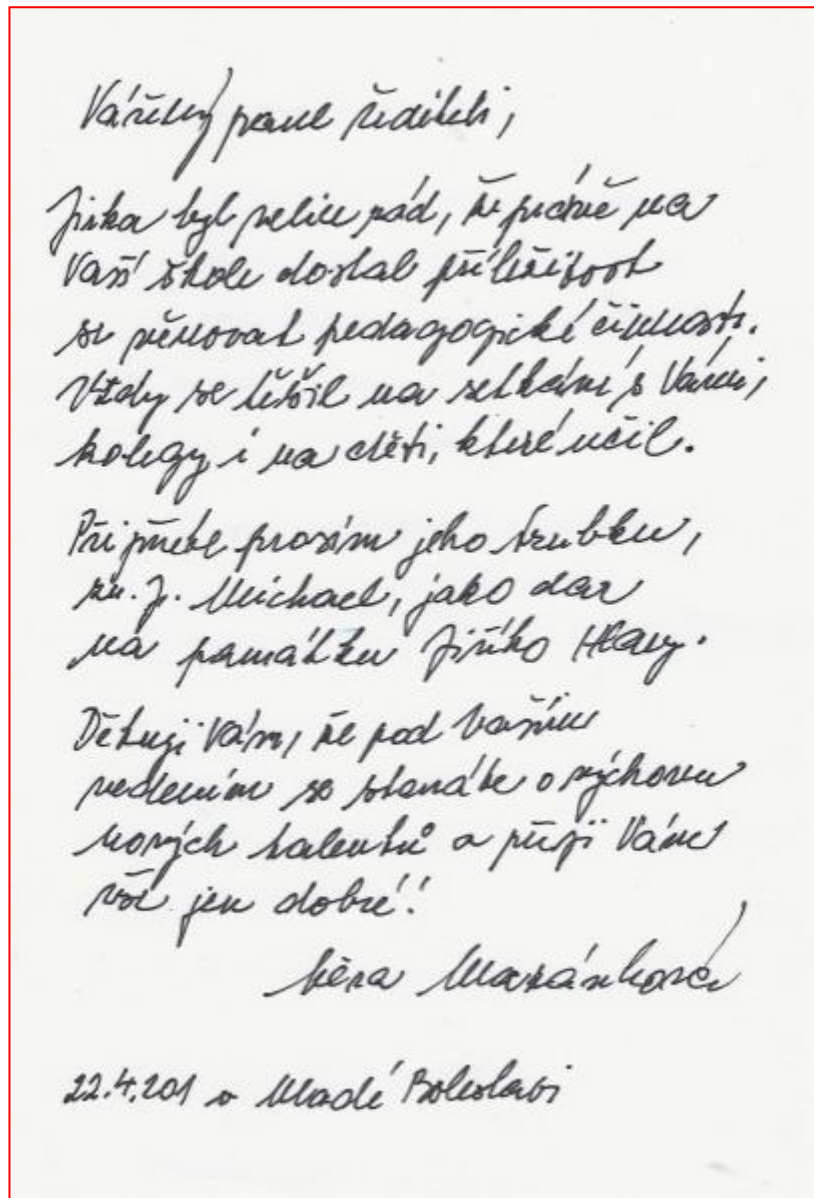 Vážený pane řediteli,
Jirka byl velice rád, že právě na
Vaší škole dostal příležitost
se věnovat pedagogické činnosti.
Vždy se těšil na setkání s Vámi,
kolegy i na děti, které učil.
Přijměte prosím jeho trubku,
zn. J. Michael, jako dar
na památku Jiřího Hlavy.
Děkuji Vám, že pod Vaším
vedením se staráte o výchovu
nových talentů a přeji Vám
vše jen dobré!
Věra Mazánková
22.4.201 v Mladé Boleslavi